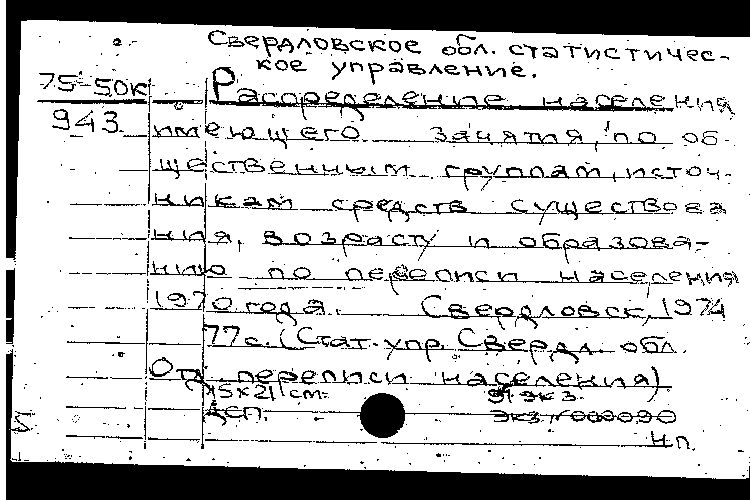 Свердловское обл. статистичес-
кое управление.
75-50к Распределение населения
943 имеющего занятия, по об-
щественным группам, источ-
никам средств существова
ния, возрасту и образова-
нию по переписи населения
1970 года. Свердловск, 1974
77 с. (Стат. упр. Свердл. обл.
Отд. переписи населения)
15х21 см.
экз.
ДСП.
н.п.